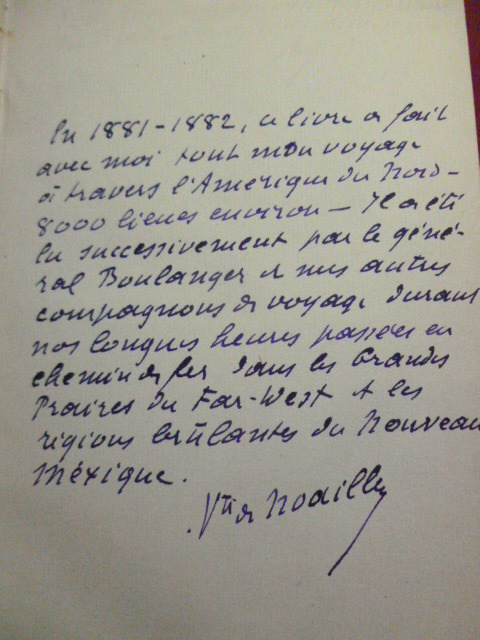 En 1881-1882, ce livre a fait
avec moi tout mon voyage
à travers l'Amérique du Nord -
8000 lieues environ - Il a été
lu successivement par le géné-
ral Boulanger & mes autres
compagnons de voyage durant
nos longues heures passées en
chemin de fer dans les Grandes
Praires du Far-West & les
régions brûlantes du Nouveau
Méxique.
Vte de Noailles